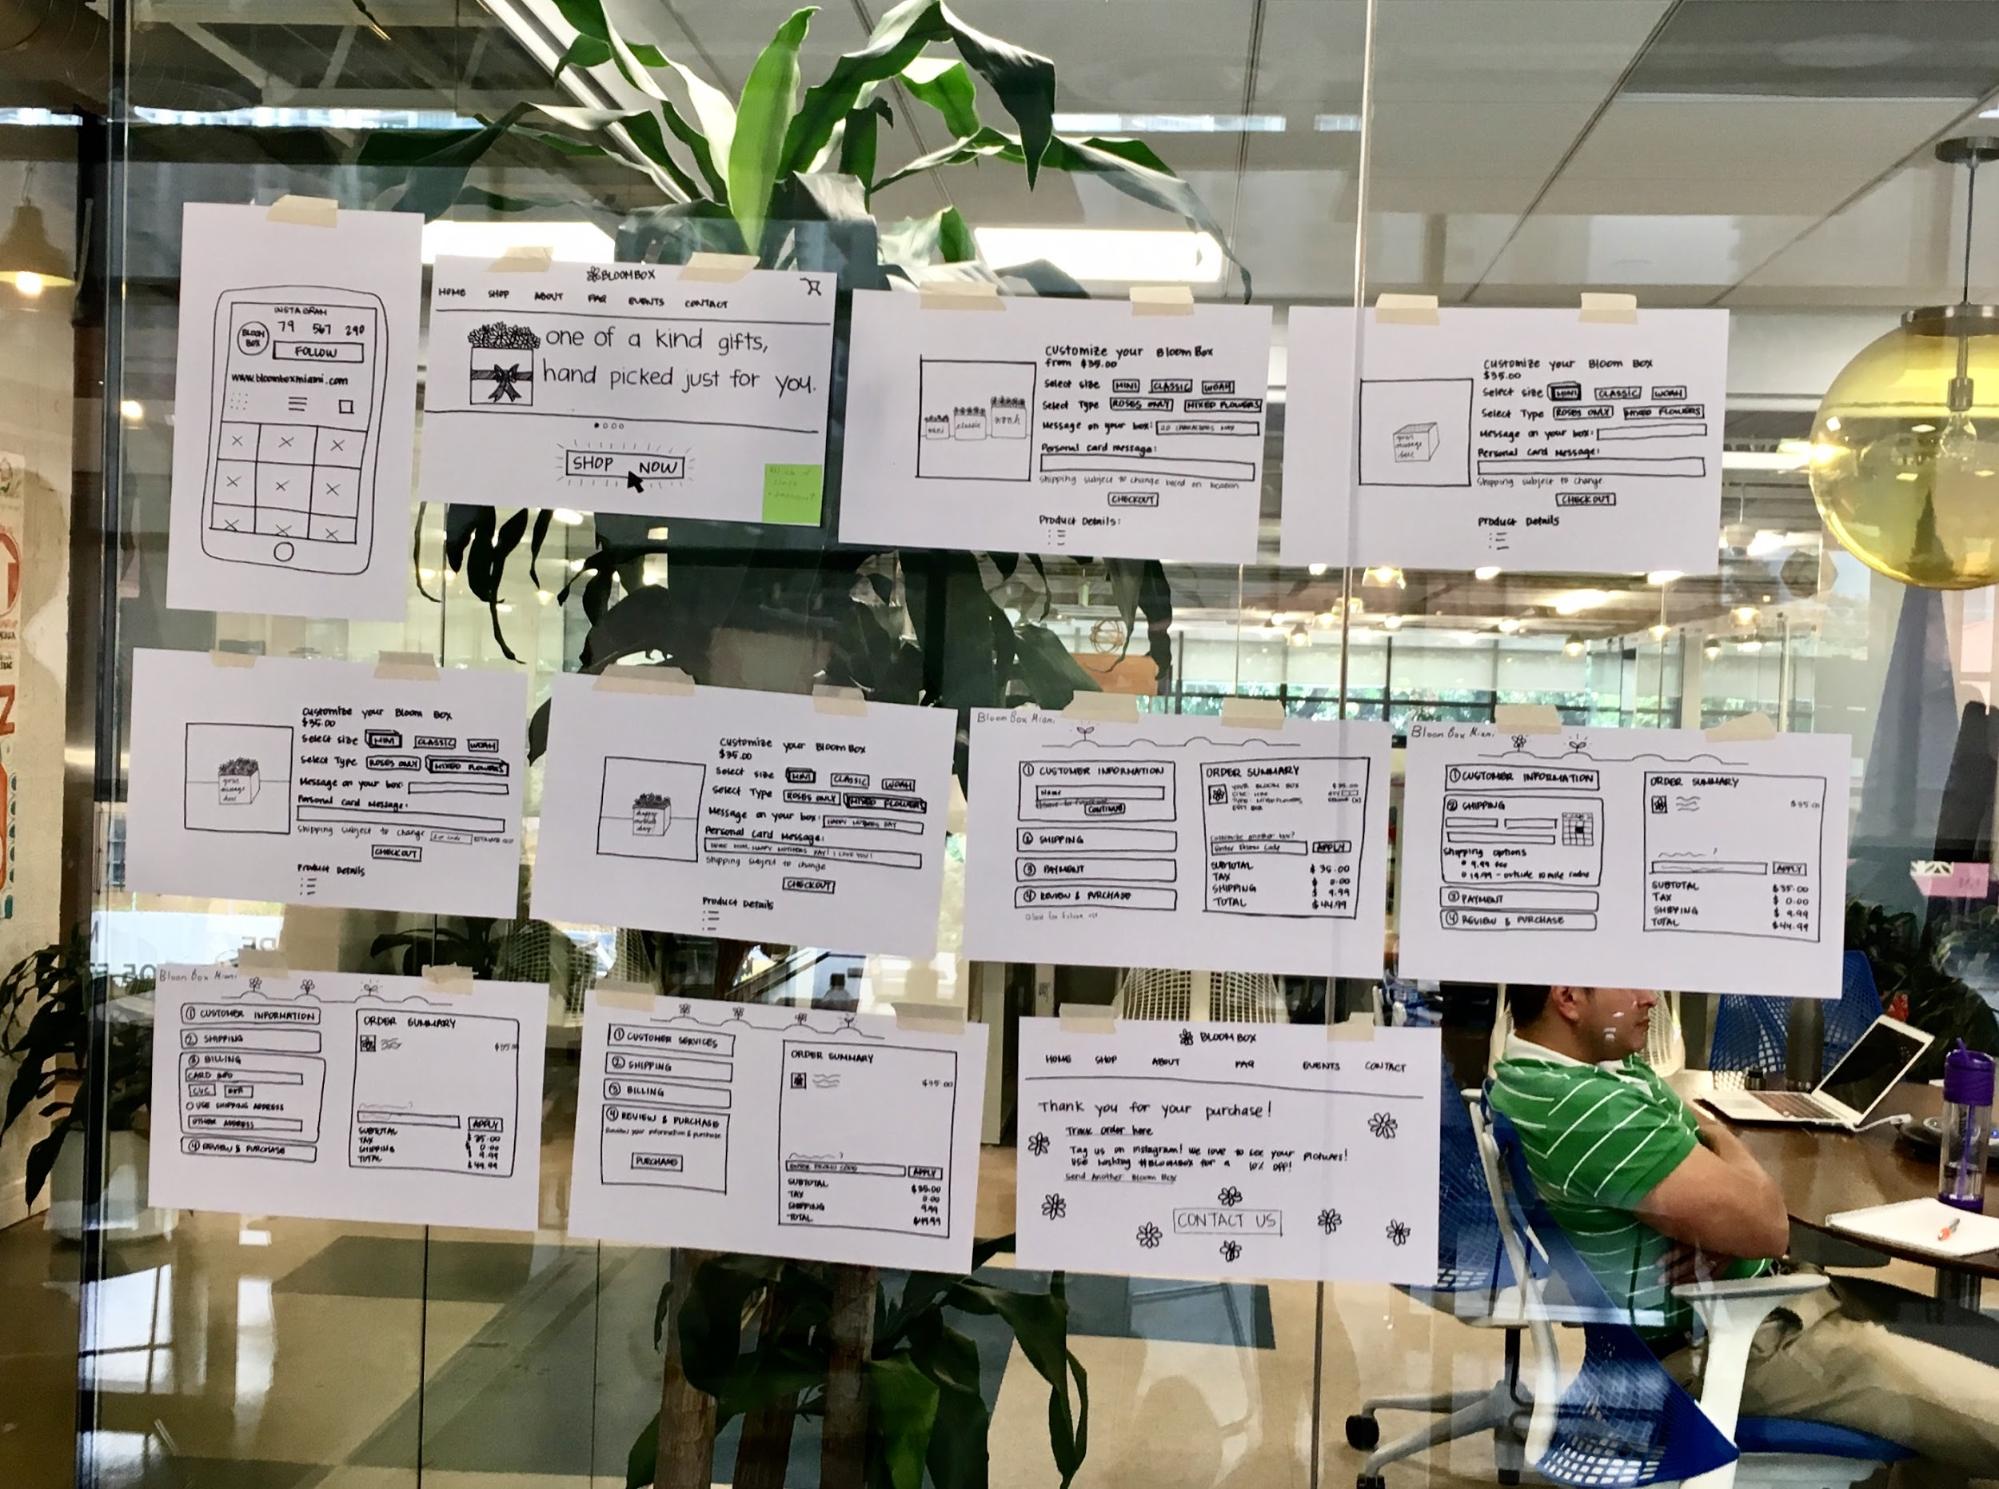 INSTAGRAM
BLOOM BOX
79 567 290
FOLLOW
www.bloomboxmiami.com
BLOOMBOX
HOME SHOP ABOUT FAQ EVENTS CONTACT
one of a kind gifts,
hand picked just for you.
SHOP NOW
Customize your BloomBox
from $35.00
Select size MINI CLASSIC WOAH
Select Type ROSES ONLY MIXED FLOWERS
Message on your box: 20 CHARACTERS MAX
Personal Card Message:
Shipping subject to change based on location
CHECKOUT
Product Details:
mini classic woah
Customize your Bloom Box
$35.00
Select size MINI CLASSIC WOAH
Select Type ROSES ONLY MIXED FLOWERS
Message on your box:
Personal Card Message:
Shipping subject to change
CHECKOUT
Product Details
your message here
Customize your Bloom Box
$35.00
Select size MINI CLASSIC WOAH
Select Type ROSES ONLY MIXED FLOWERS
Message on your box:
Personal Card Message:
Shipping subject to change
CHECKOUT
Product Details
your message here
Customize your BloomBox
$35.00
Select size MINI CLASSIC WOAH
Select Type ROSES ONLY MIXED FLOWERS
Message on your box: HAPPY MOTHERS DAY
Personal Card Message:
HAPPY MOTHERS DAY! I LOVE YOU!
Shipping subject to change
CHECKOUT
Product Details
happy mothers day!
Bloom Box Miami
① CUSTOMER INFORMATION
NAME
CONTINUE
② SHIPPING
③ PAYMENT
④ REVIEW & PURCHASE
ORDER SUMMARY
YOUR BLOOM BOX $35.00
SIZE: MINI
TYPE: MIXED FLOWERS
EDIT BOX
Customize another box?
Enter Promo Code APPLY
SUBTOTAL $35.00
TAX $0.00
SHIPPING $9.99
TOTAL $44.99
Bloom Box Miami
① CUSTOMER INFORMATION
② SHIPPING
Shipping options
• 9.99
• 19.99 - outside 10 mile radius
③ PAYMENT
④ REVIEW & PURCHASE
ORDER SUMMARY
$35.00
APPLY
SUBTOTAL $35.00
TAX $0.00
SHIPPING $9.99
TOTAL $44.99
Bloom Box Miami
① CUSTOMER INFORMATION
② SHIPPING
③ BILLING
CARD INFO
CVC EXP
USE SHIPPING ADDRESS
OTHER ADDRESS
④ REVIEW & PURCHASE
ORDER SUMMARY
$35.00
APPLY
SUBTOTAL $35.00
TAX $0.00
SHIPPING $9.99
TOTAL $44.99
① CUSTOMER SERVICES
② SHIPPING
③ BILLING
④ REVIEW & PURCHASE
Review your information & purchase
PURCHASE
ORDER SUMMARY
$35.00
ENTER PROMO CODE APPLY
SUBTOTAL $35.00
TAX 0.00
SHIPPING 9.99
TOTAL $44.99
BLOOM BOX
HOME SHOP ABOUT FAQ EVENTS CONTACT
Thank you for your purchase!
Track order here
Tag us on Instagram! We love to see your pictures!
Use hashtag #BLOOMBOX for a 10% off!
Send Another Bloom Box
CONTACT US